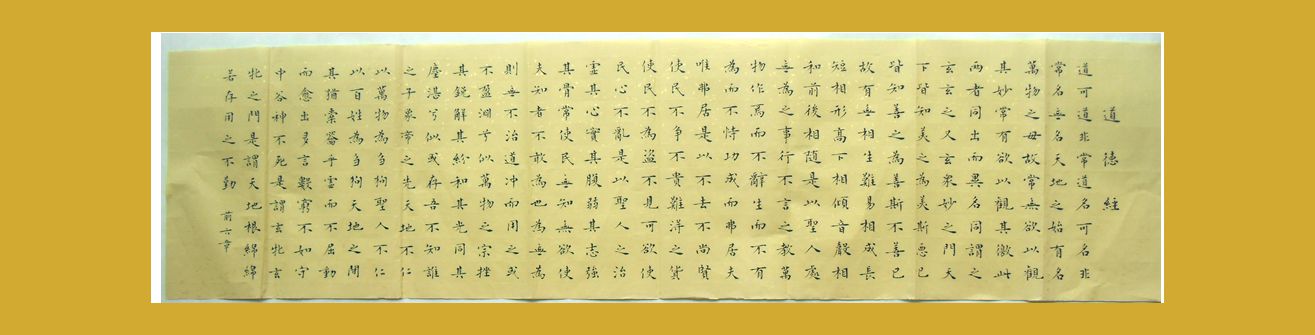 道德經
道可道非常道名可名非
常名無名天地之始有名
萬物之母故常無欲以觀
其妙常有欲以觀其徼此
兩者同出而異名同謂之
玄玄之又玄眾妙之門天
下皆知美之為美斯惡已
皆知善之為善斯不善已
故有無相生難易相成長
短相形高下相傾音聲相
和前後相隨是以聖人處
無為之事行不言之教萬
物作焉而不辭生而不有
為而不恃功成而弗居夫
唯弗居是以不去不尚賢
使民不爭不貴難得之貨
使民不為盜不見可欲使
民心不亂是以聖人之治
虛其心實其腹弱其志強
其骨常使民無知無欲使
夫知者不敢為也為無為
則無不治道沖而用之或
不盈淵兮似萬物之宗挫
其銳解其紛和其光同其
塵湛兮似或存吾不知誰
之子象帝之先天地不仁
以萬物為芻狗聖人不仁
以百姓為芻狗天地之間
其猶橐籥乎虛而不屈動
而愈出多言數窮不如守
中谷神不死是謂玄牝玄
牝之門是謂天地根綿綿
若存用之不勤
前六章